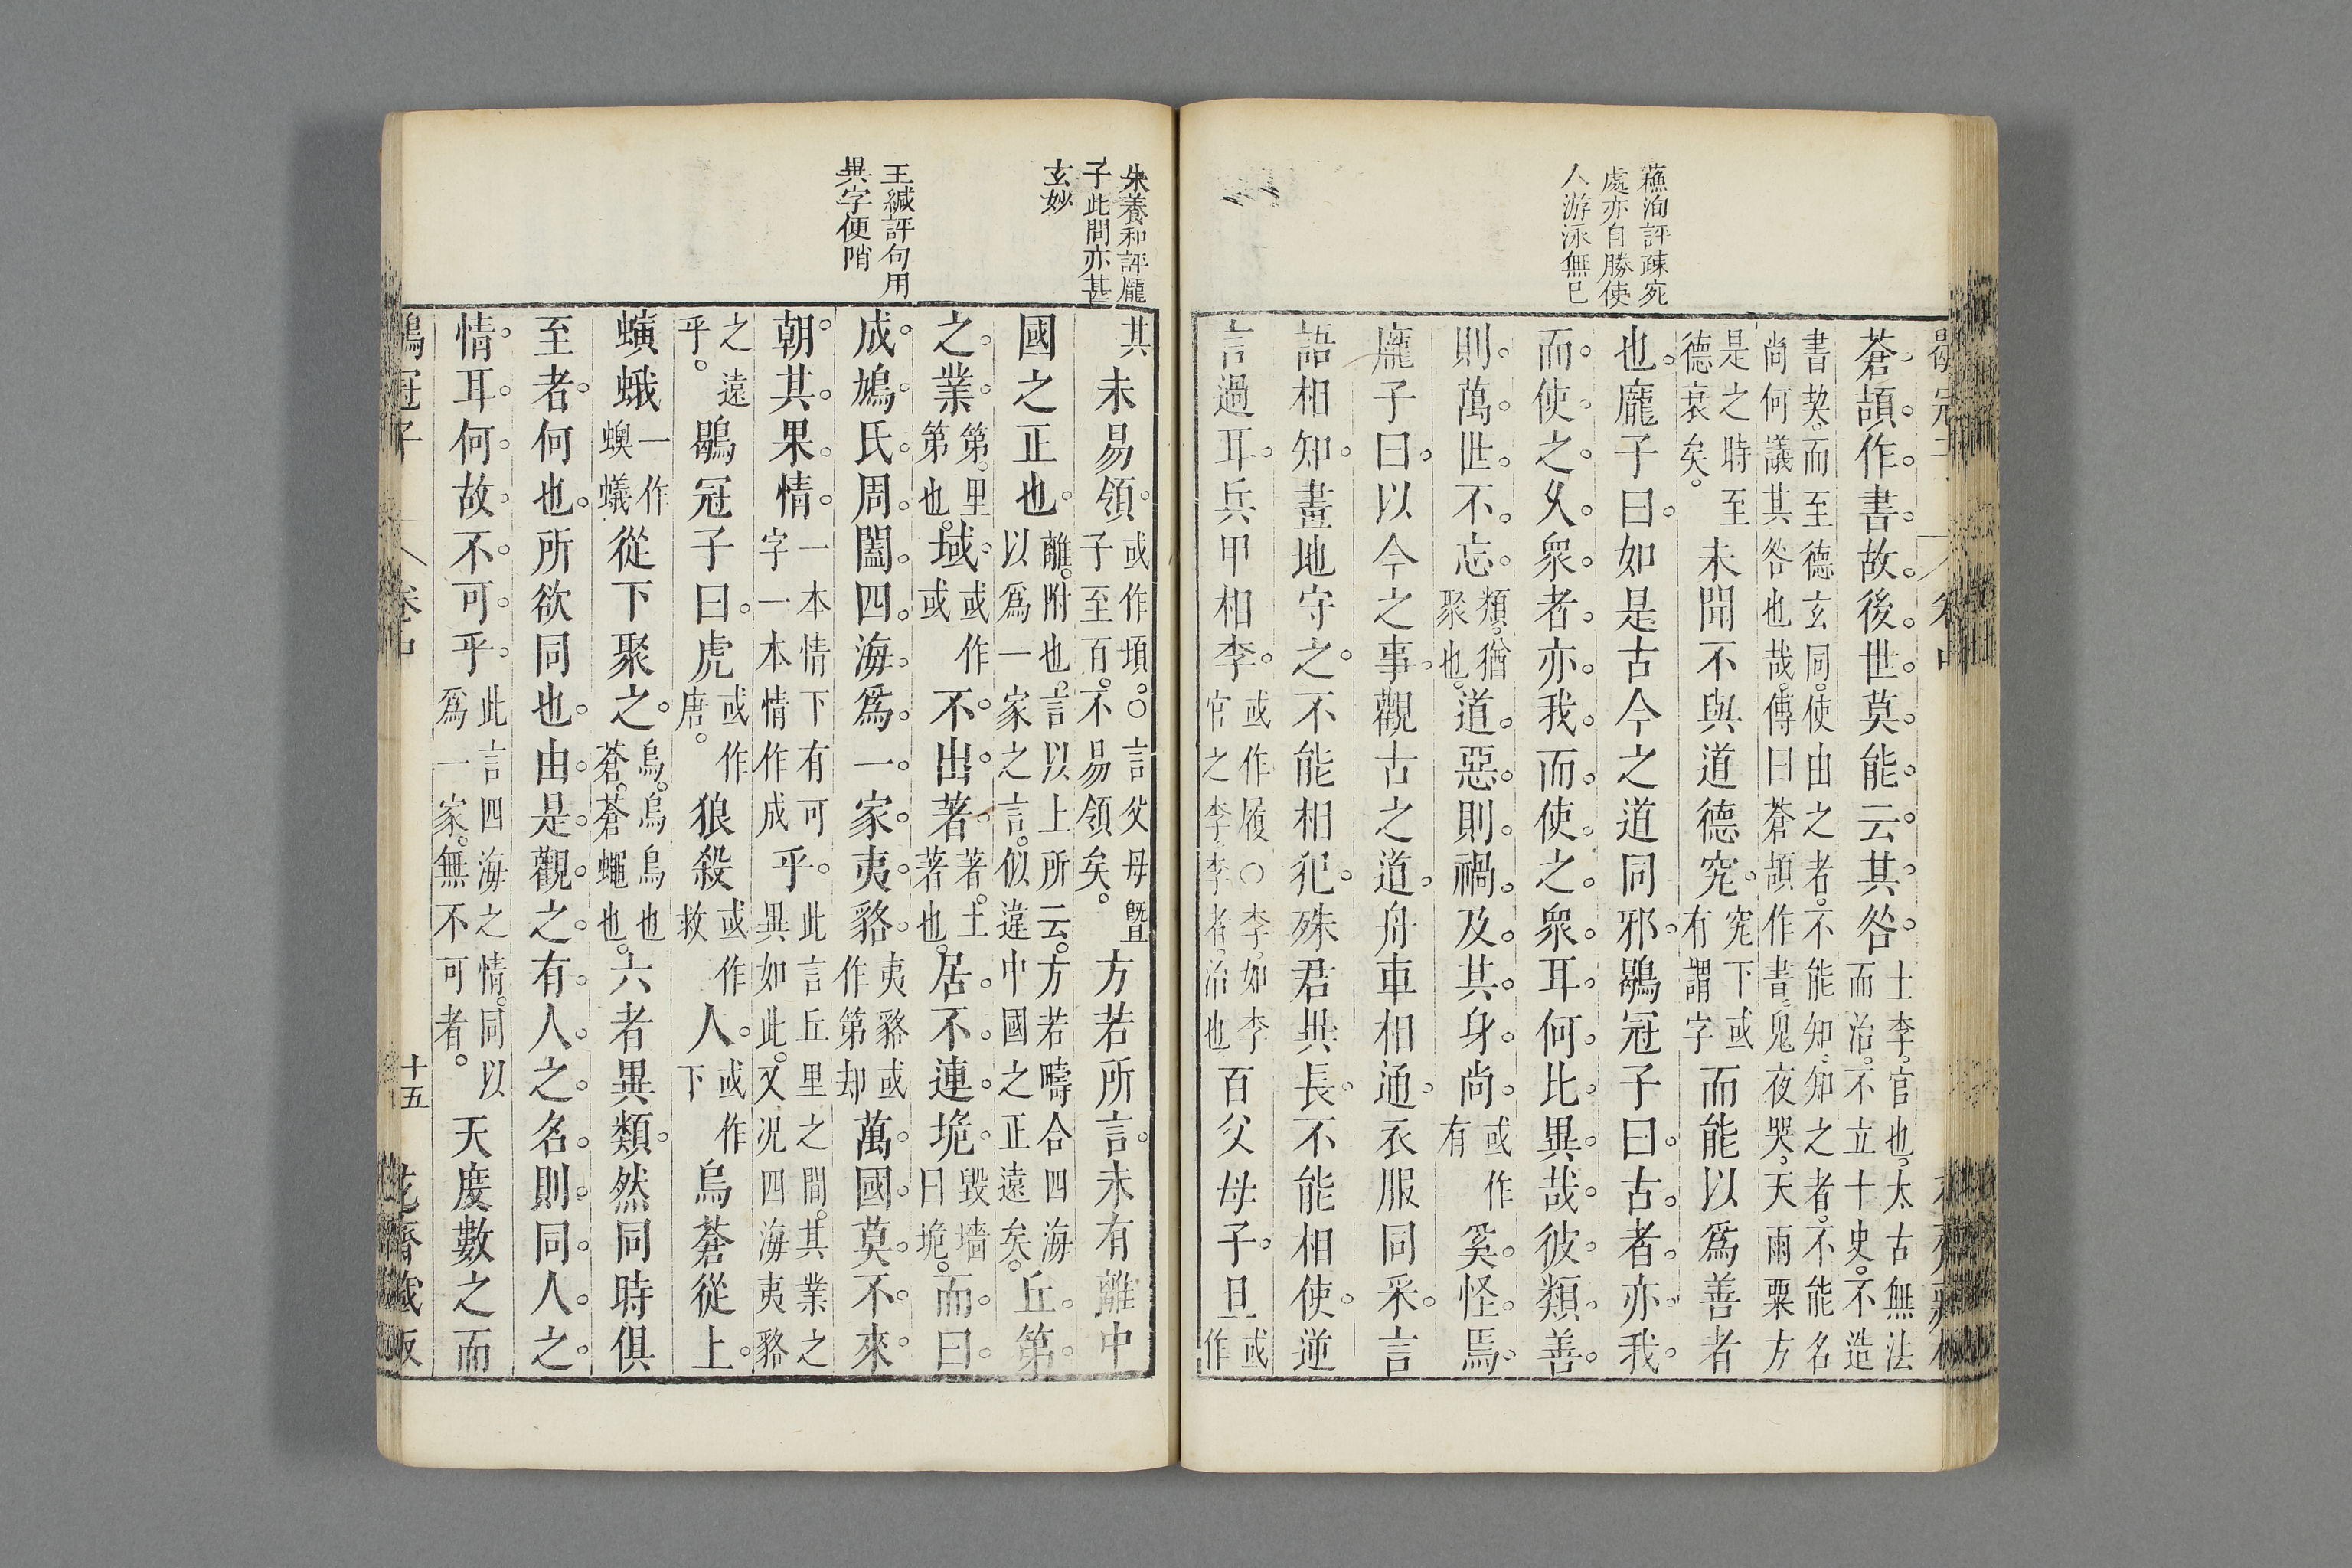 蘇洵評疎宛
處亦自勝使
人游泳無已
蒼頡作書。故。後世。莫。能。云。其。咎。士李官也太古無法而治不立十史不造
書契而至德玄同使由之者不能知知之者不能名尚何議其咎也哉傳曰蒼頡作書鬼夜哭天雨粟方
是之時至德衰矣。未聞不與道德究。究下或有謂字而能以爲善者
也。龐子曰。如是古今之道同邪。鶡冠子曰。古。者。亦。我。
而。使。之。久。衆。者。亦。我。而。使。之。衆。耳。何。比。異。哉。彼。類。善。
則。萬。世。不。忘。類猶聚也道。惡。則。禍。及。其。身。尚。或作有奚。怪。焉。
龐子曰。以今之事。觀古之道。舟車相通。衣服同采。言
語相知。畫地守之。不能相犯。殊君異長。不能相使。逆
言過耳。兵甲相李。或作履〇李如李官之李李者治也百父母子。且或作
朱養和評龐
子此問亦甚
玄妙
王緘評句用
異字便陗
其未易領。或作頃。〇言父母暨子至百不易領矣。方若所言。未有離中
國之正也。離附也言以上所云方若疇合四海以爲一家之言似違中國之正遠矣。丘。第。
之。業。第里第也域。或作或不。出。著。著土著也居。不。連。垝。毀墻曰垝。而。曰。
成。鳩。氏。周。闔。四。海。爲。一。家。夷。貉。夷貉或作第却萬。國。莫。不。來。
朝。其。果。情。一本情下有可字一本情作成乎。此言丘里之間其業之異如此又况四海夷貉
之遠乎。鶡冠子曰。虎或作唐。狼殺或作救人。或作下烏蒼從上。
螾蛾一作蝡蟻從下聚之。烏烏烏也蒼蒼蠅也六者異類。然同時俱
至者。何也。所欲同也。由。是。觀。之。有。人。之。名。則。同。人。之。
情。耳。何。故。不。可。乎。此言四海之情同以爲一家無不可者。天度數之而
鶡冠子 卷中 十五 花齋藏板